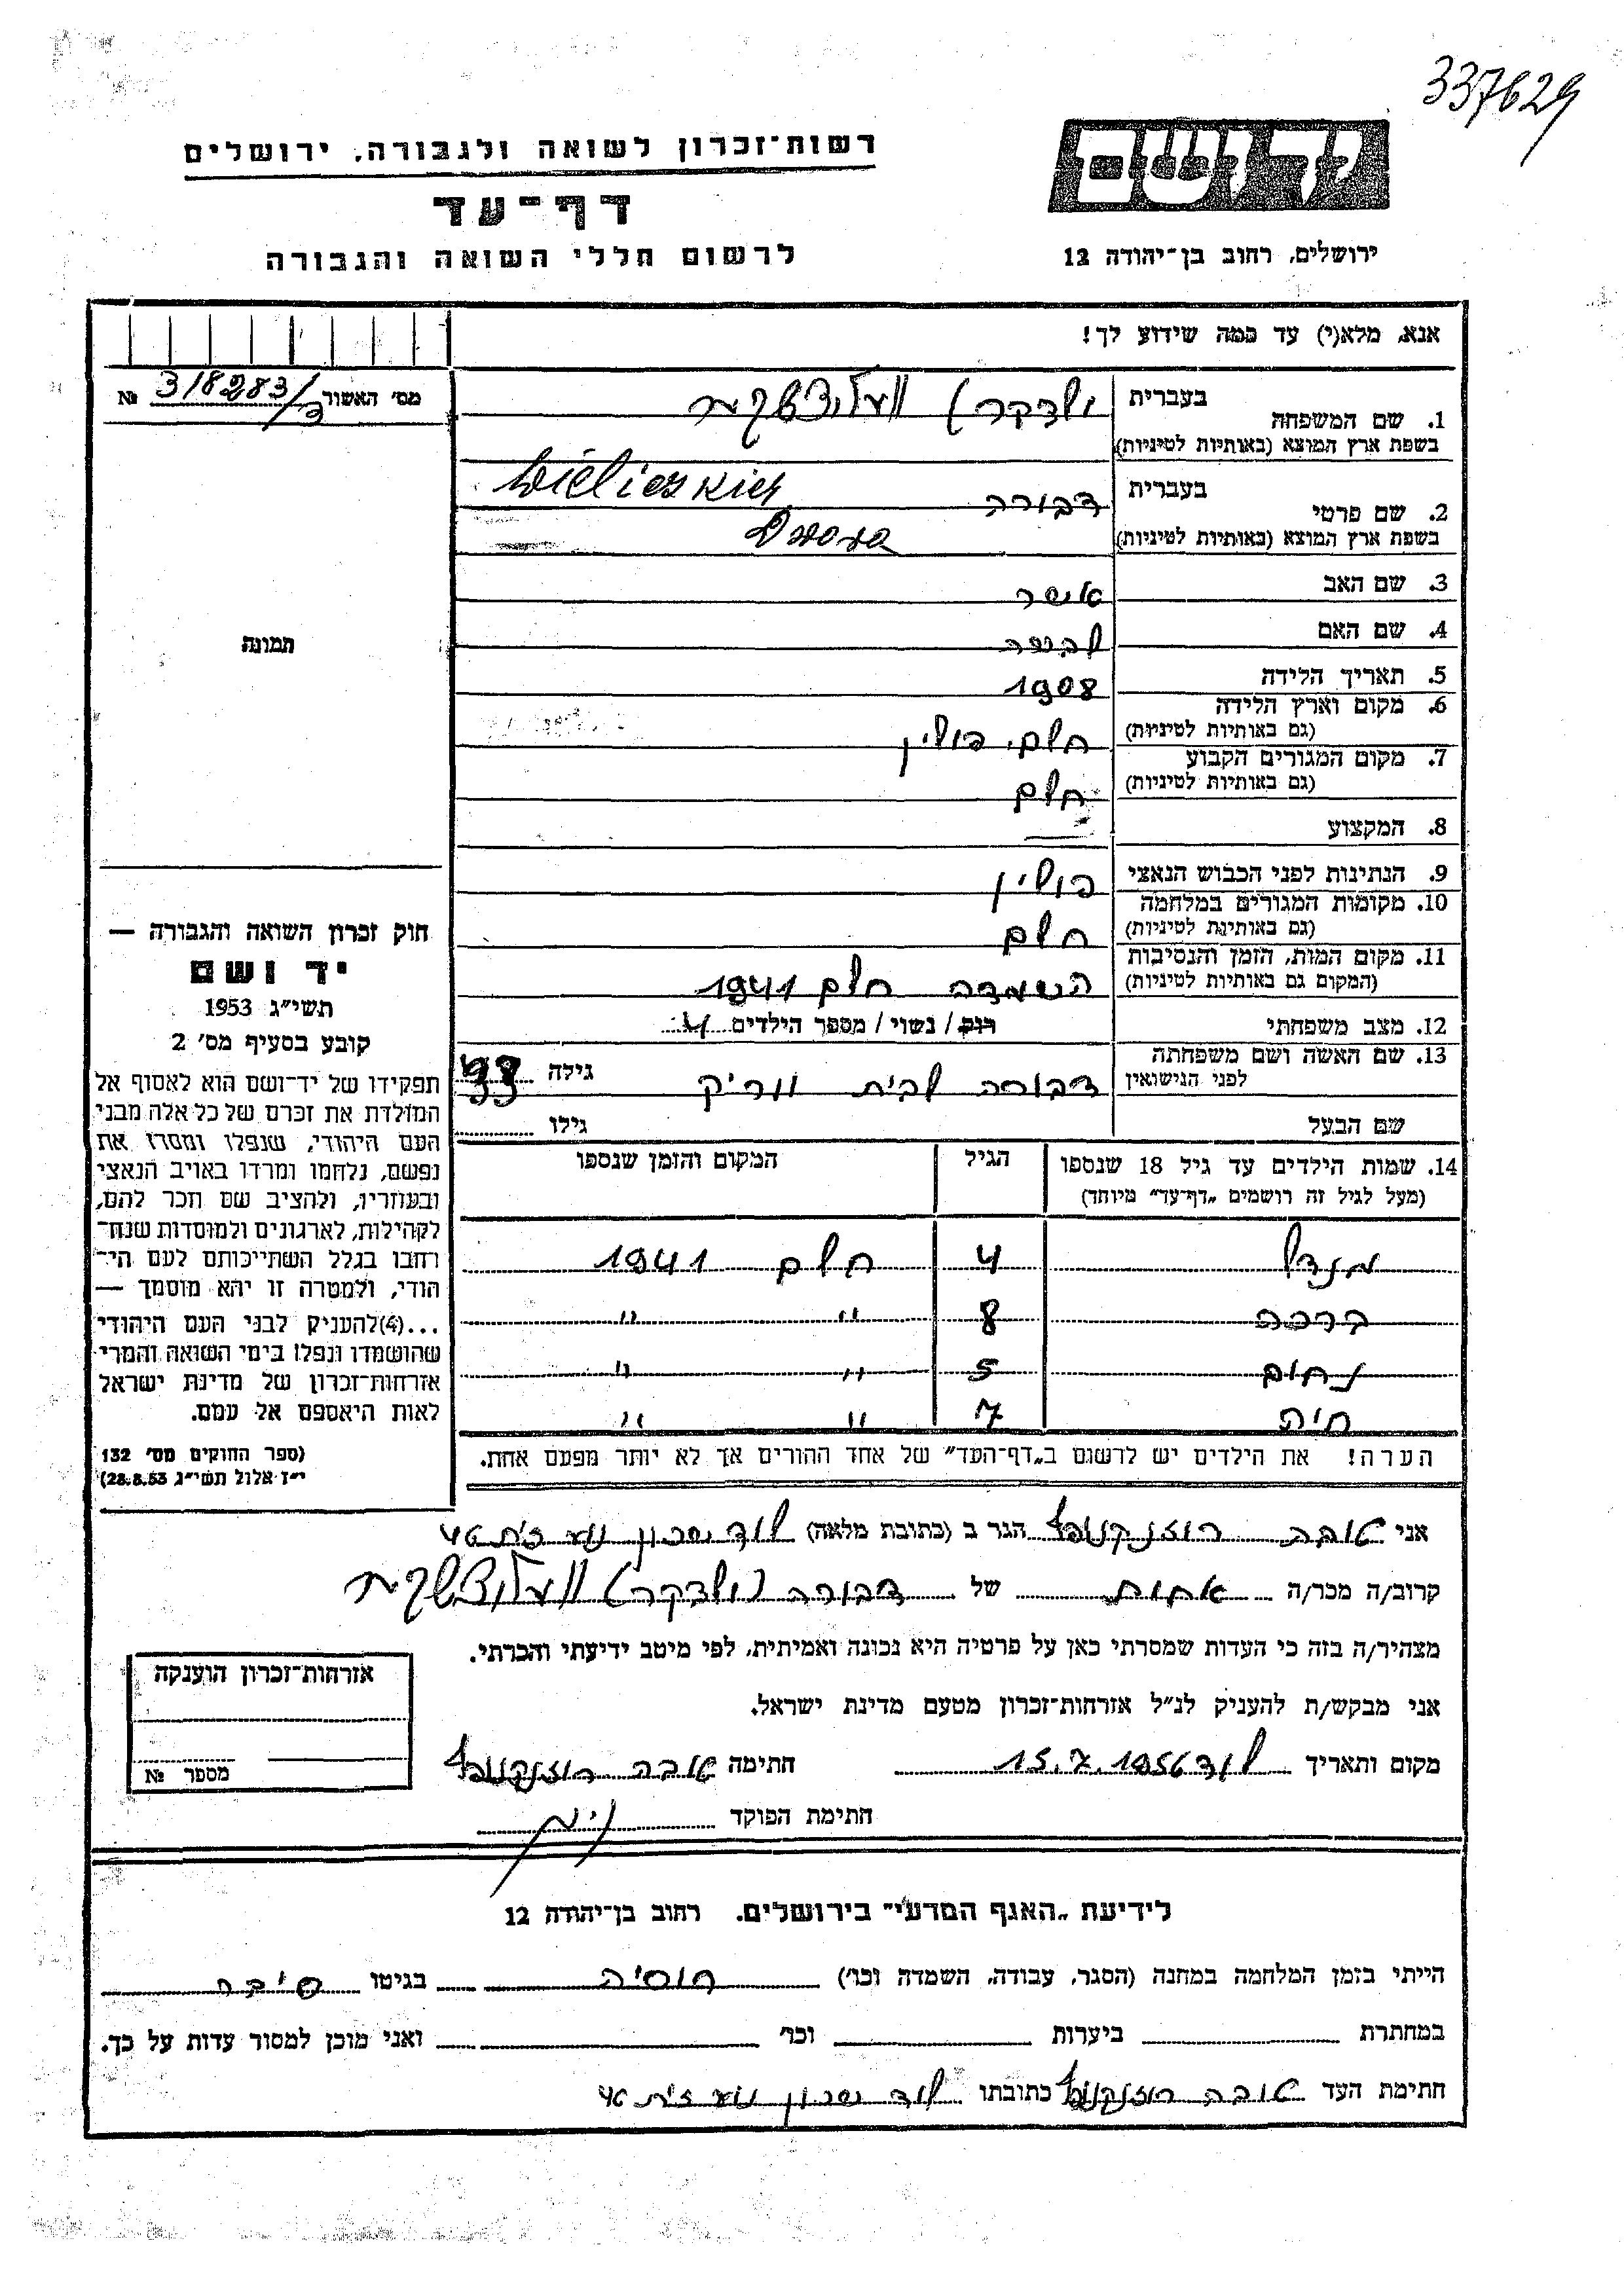 337629
יד ושם
רשות־זכרון לשואה ולגבורה, ירושלים
דף־עד
ירושלים, רחוב בן־יהודה 12
לרשום חללי השואה והגבורה
אנא, מלא(י) עד כמה שידוע לך!
מס' האשור 318283/ No
1. שם המשפחה בעברית
בשפת ארץ המוצא (באותיות לטיניות)
2. שם פרטי בעברית דבורה
בשפת ארץ המוצא (באותיות לטיניות)
3. שם האב אשר
4. שם האם
5. תאריך הלידה 1908
6. מקום וארץ הלידה חלם, פולין
(גם באותיות לטיניות)
7. מקום המגורים הקבוע חלם
(גם באותיות לטיניות)
8. המקצוע —
9. הנתינות לפני הכבוש הנאצי פולין
10. מקומות המגורים במלחמה חלם
(גם באותיות לטיניות)
11. מקום המות, הזמן והנסיבות השמדה חלם 1941
(המקום גם באותיות לטיניות)
12. מצב משפחתי רוק / נשוי / מספר הילדים 4
13. שם האשה ושם משפחתה דבורה לבית ווריק גילה 33
לפני הנישואין
שם הבעל גילו
14. שמות הילדים עד גיל 18 שנספו הגיל המקום והזמן שנספו
(מעל לגיל זה רושמים „דף־עד" מיוחד)
מנדל 4 חלם 1941
ברכה 8 " "
נחום 5 " "
חיה 7 " "
הערה! את הילדים יש לרשום ב„דף־העד" של אחד ההורים אך לא יותר מפעם אחת.
תמונה
חוק זכרון השואה והגבורה —
יד ושם
תשי"ג 1953
קובע בסעיף מס' 2
תפקידו של יד־ושם הוא לאסוף אל
המולדת את זכרם של כל אלה מבני
העם היהודי, שנפלו ומסרו את
נפשם, נלחמו ומרדו באויב הנאצי
ובעוזריו, ולהציב שם וזכר להם,
לקהילות, לארגונים ולמוסדות שנח־
רבו בגלל השתייכותם לעם הי־
הודי, ולמטרה זו יהא מוסמך —
...(4)להעניק לבני העם היהודי
שהושמדו ונפלו בימי השואה והמרי
אזרחות־זכרון של מדינת ישראל
לאות היאספם אל עמם.
(ספר החוקים מס' 132
י"ז אלול תשי"ג 28.8.53)
אני טובה הגר ב (כתובת מלאה) לוד
קרוב/ה מכר/ה אחות של דבורה
מצהיר/ה בזה כי העדות שמסרתי כאן על פרטיה היא נכונה ואמיתית, לפי מיטב ידיעתי והכרתי.
אני מבקש/ת להעניק לנ"ל אזרחות־זכרון מטעם מדינת ישראל.
מקום ותאריך לוד 15.7.1956 חתימה טובה
חתימת הפוקד
אזרחות־זכרון הוענקה
מספר No
לידיעת „האגף המדעי" בירושלים. רחוב בן־יהודה 12
הייתי בזמן המלחמה במחנה (הסגר, עבודה, השמדה וכו') רוסיה בגיטו סיביר
במחתרת ביערות וכו' ואני מוכן למסור עדות על כך.
חתימת העד טובה כתובתו לוד